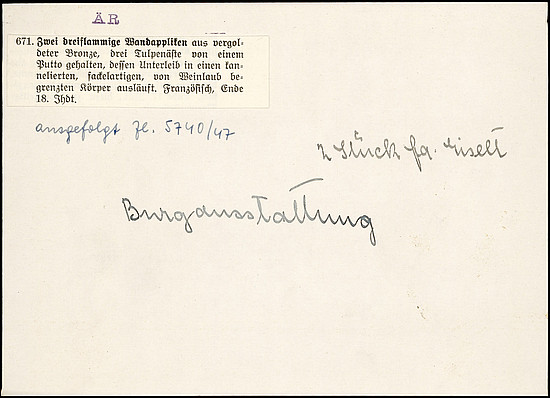 ÄR
671. Zwei dreiflammige Wandappliken aus vergol-
deter Bronze, drei Tulpenäste von einem
Putto gehalten, dessen Unterleib in einen kan-
nelierten, fackelartigen, von Weinlaub be-
grenzten Körper ausläuft. Französisch, Ende
18. Jhdt.
ausgefolgt Zl. 5740/47
2 Stück fa.
Burgausstattung